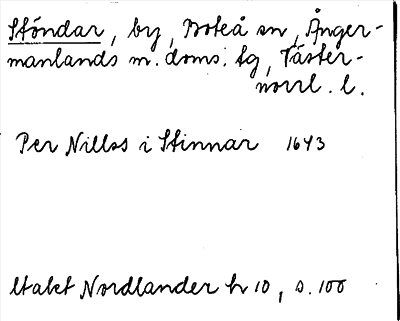 Stöndar, by, Boteå sn, Ånger-
manlands m. doms. tg, Väster-
norrl. l.
Per Nillss i Stinnar 1643
Utalet Nordlander h 10, s. 100